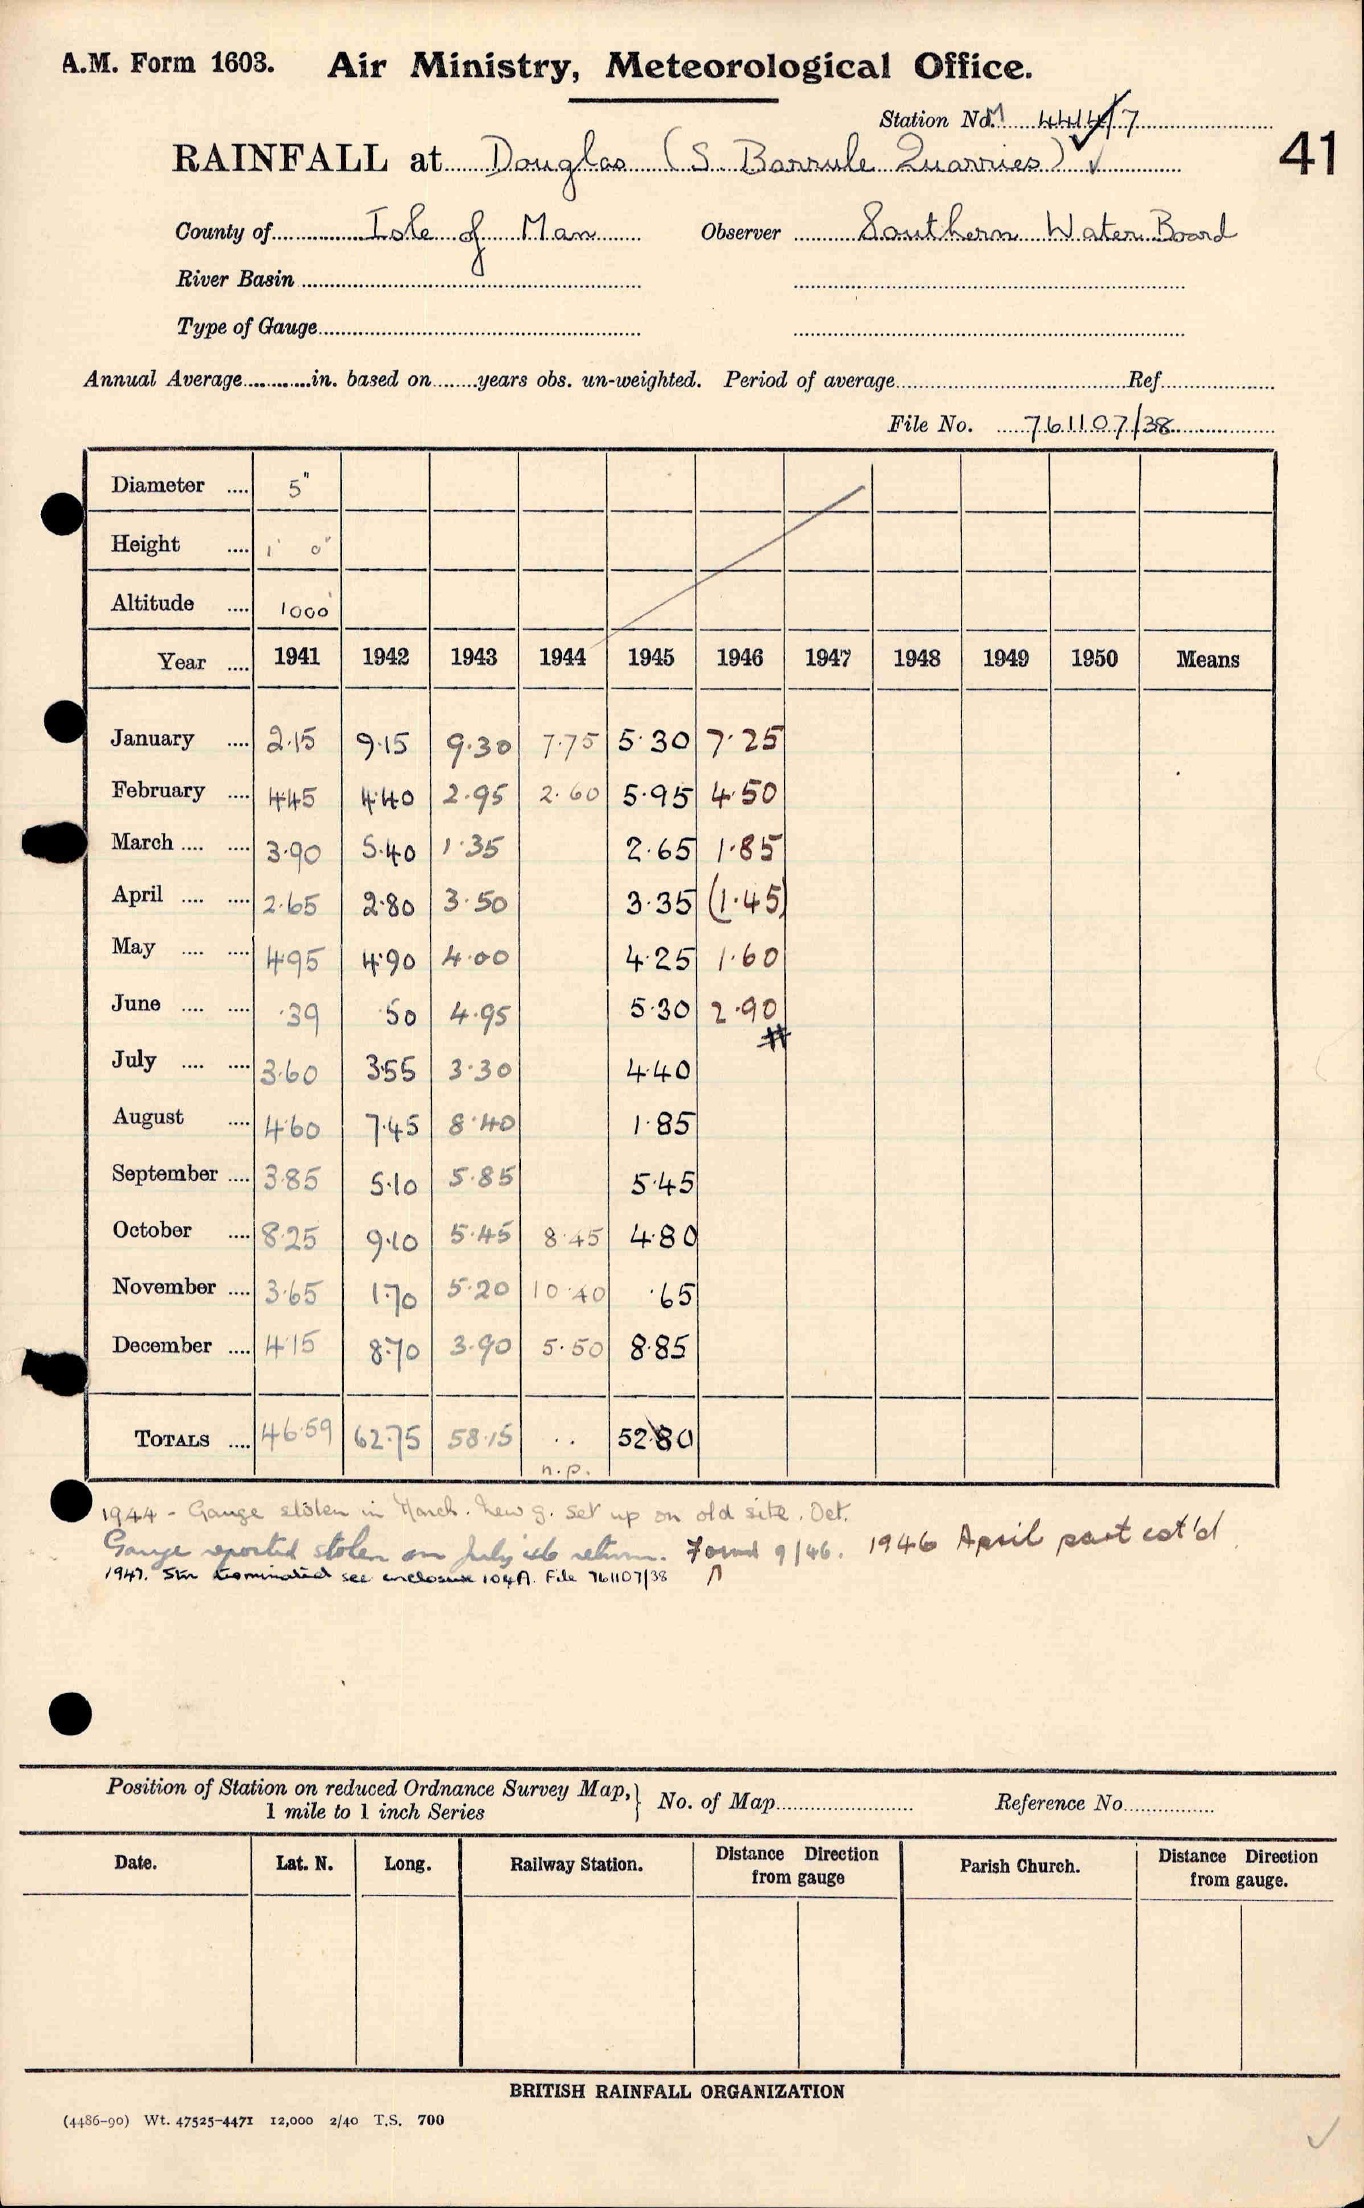 A.M. Form 1603. Air Ministry, Meteorological Office.
Station No. M 4414/7
41
RAINFALL at Douglas (S. Barrule Quarries)
County of Isle of Man Observer Southern Water Board
River Basin
Type of Gauge
Annual Average in. based on years obs. un-weighted. Period of average Ref
File No. 761107/38
Diameter .... 5"
Height .... 1' 0"
Altitude .... 1000'
Year .... 1941 1942 1943 1944 1945 1946 1947 1948 1949 1950 Means
January .... 2.15 9.15 9.30 7.75 5.30 7.25
February .... 4.45 4.40 2.95 2.60 5.95 4.50
March .... .... 3.90 5.40 1.35 2.65 1.85
April .... .... 2.65 2.80 3.50 3.35 (1.45)
May .... .... 4.95 4.90 4.00 4.25 1.60
June .... .... .39 .50 4.95 5.30 2.90
#
July .... .... 3.60 3.55 3.30 4.40
August .... 4.60 7.45 8.40 1.85
September .... 3.85 5.10 5.85 5.45
October .... 8.25 9.10 5.45 8.45 4.80
November .... 3.65 1.70 5.20 10.40 .65
December .... 4.15 8.70 3.90 5.50 8.85
TOTALS .... 46.59 62.75 58.15 .. 52.80
n.p.
1944 - Gauge stolen in March. New g. set up on old site. Oct.
Gauge reported stolen on July '46 return. Found 9/46. 1946 April part est'd.
1947. Stn terminated see enclosure 104A. File 761107/38
Position of Station on reduced Ordnance Survey Map, 1 mile to 1 inch Series } No. of Map Reference No
Date. Lat. N. Long. Railway Station. Distance Direction from gauge Parish Church. Distance Direction from gauge.
BRITISH RAINFALL ORGANIZATION
(4486-90) Wt. 47525-4471 12,000 2/40 T.S. 700